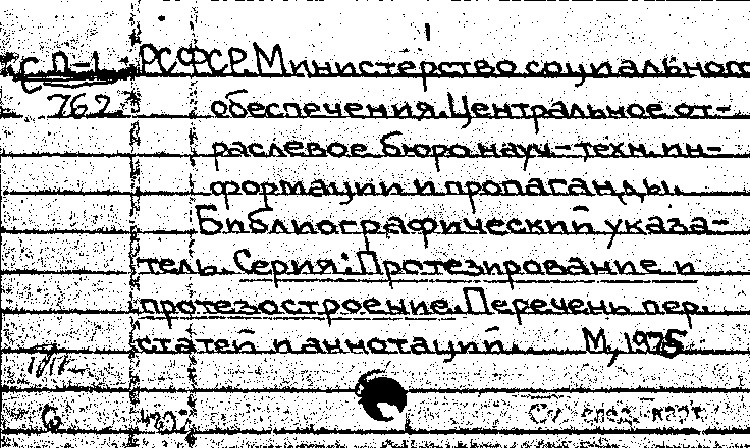 СП-1
762
РСФСР. Министерство социального
обеспечения. Центральное от-
раслевое бюро науч-техн. ин-
формации и пропаганды.
Библиографический указа-
тель. Серия: Протезирование и
протезостроение. Перечень пер.
статей и аннотаций. М, 1975
См. след. карт.